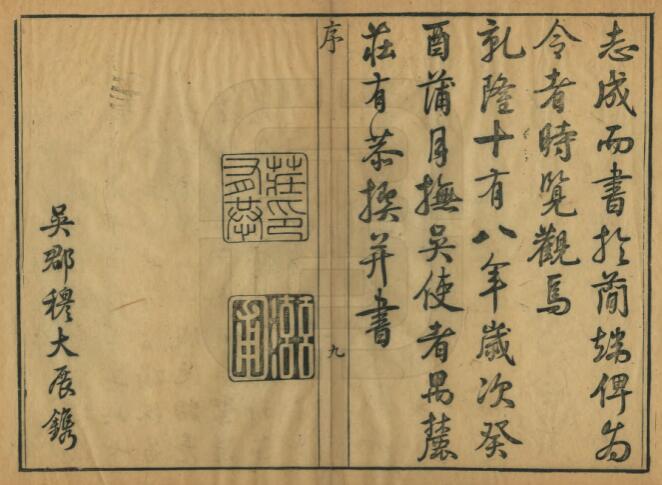 志成而書於簡端俾為
令者時覽觀焉
乾隆十有八年歲次癸
酉蒲月撫吳使者番禺
莊有恭撰并書
序
九
莊有恭印
吳郡穆大展鐫